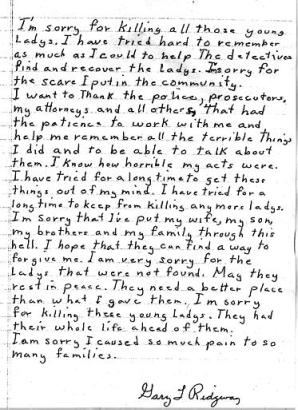 I'm sorry for killing all those young
Ladys. I have tried hard to remember
as much as I could to help The detectives
find and recover the Ladys. I'm sorry for
the scare I put in the community.
I want to Thank the police, prosecutors,
my attorneys and all others, that had
the patience to work with me and
help me remember all the terrible Things
I did and to be able to talk about
them. I know how horrible my acts were.
I have tried for a long time to get these
things out of my mind. I have tried for a
long time to keep from killing any more ladys.
I'm sorry that I've put my wife, my son,
my brothers and my family through this
hell. I hope that they can find a way to
forgive me. I am very sorry for the
Ladys that were not found. May they
rest in peace. They need a better place
than what I gave them. I'm sorry
for killing these young Ladys. They had
their whole life ahead of them.
I am sorry I caused so much pain to so
many families.
Gary L Ridgway